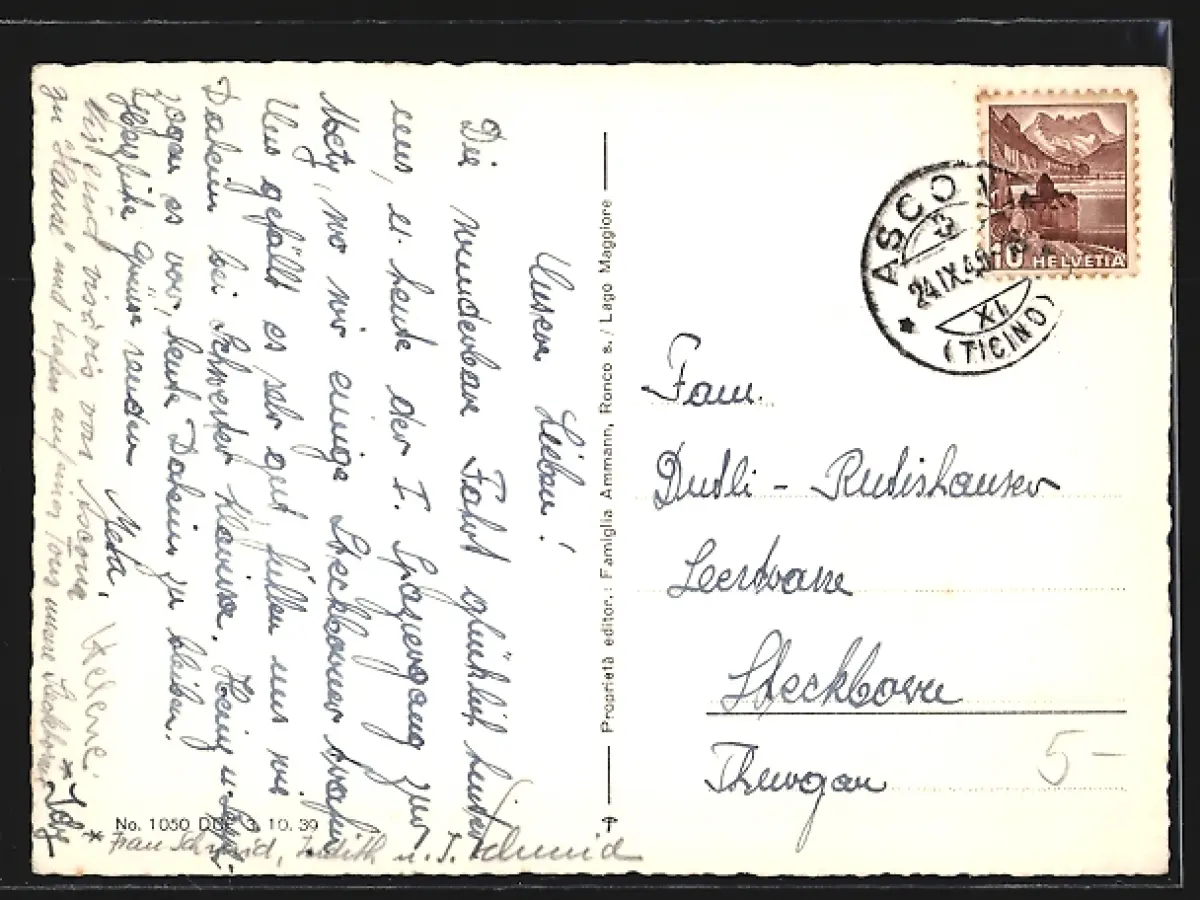 Unsere Lieben!
Die wunderbare Fahrt glücklich hinter
uns, u. heute der I. Spaziergang zur
Mety, wo wir einige Steckborner trafen
Uns gefällt es sehr gut fühlen uns wie
Daheim bei Schwester Klarissa.
zogen es vor, heute Daheim zu bleiben.
Herzliche Grüsse senden
Meta. Helene.
vis à vis von Ascona
zu "Hause" und trafen unsere
* Frau Schmid, Judith u. J. Schmid
No. 1050 3. 10. 39
Proprietà editor.: Famiglia Ammann, Ronco s./Lago Maggiore
ASCONA
24.IX.
XI.
(TICINO)
10 HELVETIA
Fam.
Dudli - Rutishauser
Seestrasse
Steckborn
Thurgau
5-